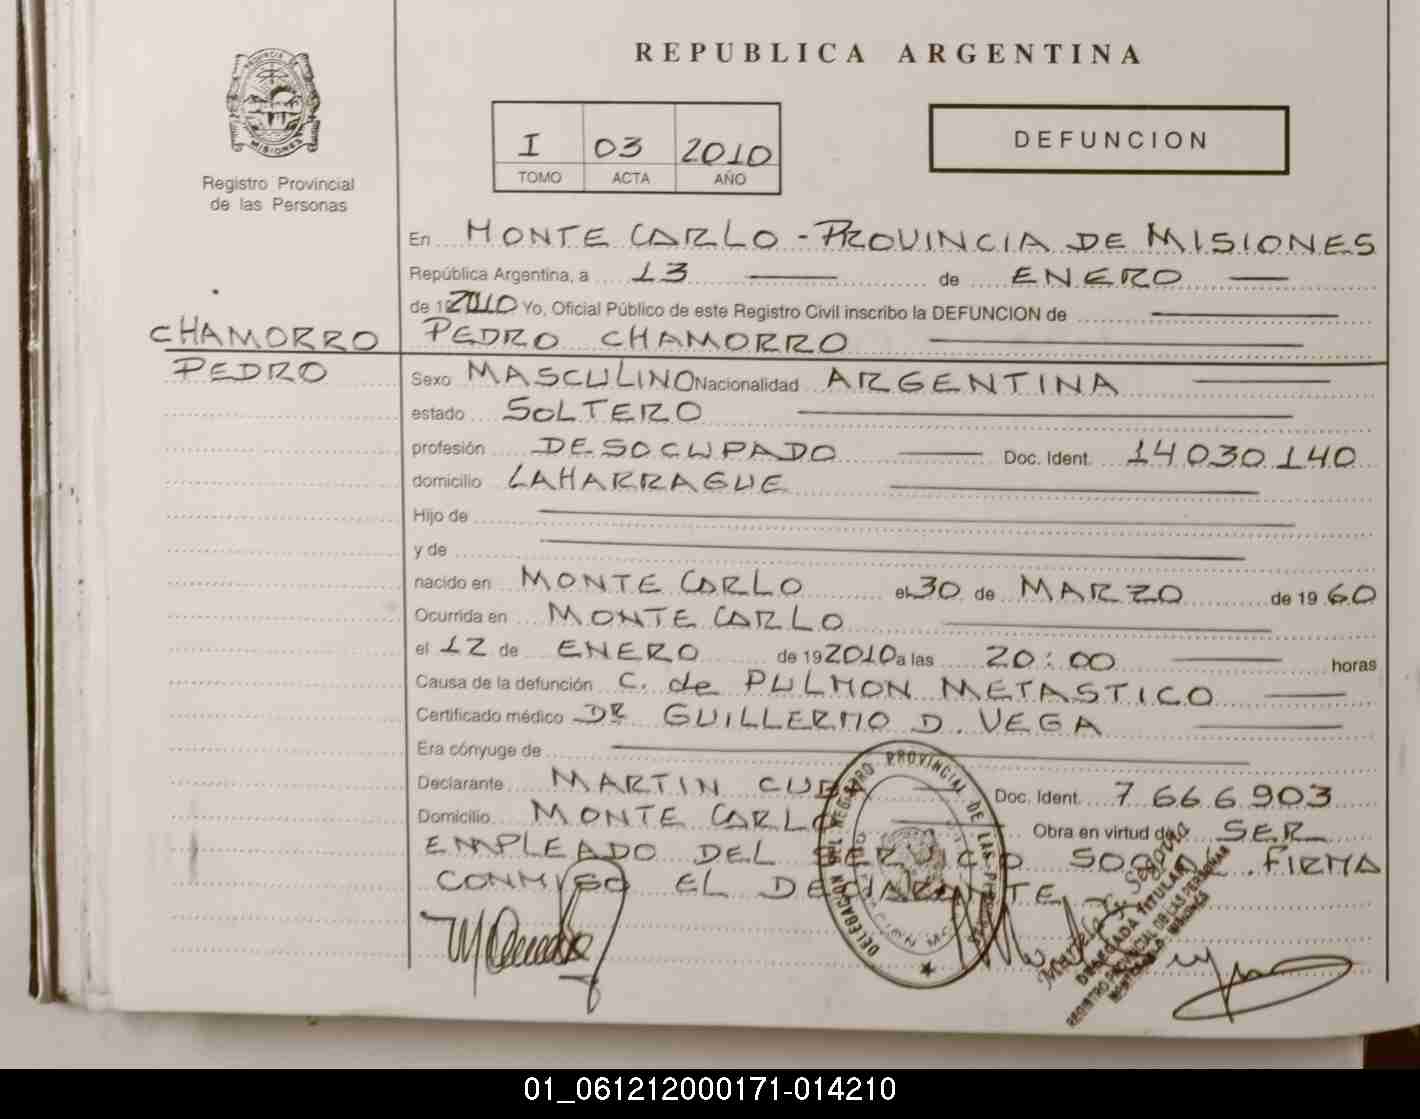 REPUBLICA ARGENTINA
PROVINCIA DE
MISIONES
Registro Provincial
de las Personas
I 03 2010
TOMO ACTA AÑO
DEFUNCION
En MONTE CARLO - PROVINCIA DE MISIONES
República Argentina, a 13 de ENERO
de 2010 Yo, Oficial Público de este Registro Civil inscribo la DEFUNCION de
CHAMORRO PEDRO CHAMORRO
PEDRO Sexo MASCULINO Nacionalidad ARGENTINA
estado SOLTERO
profesión DESOCUPADO Doc. Ident. 14030140
domicilio LAHARRAGUE
Hijo de
y de
nacido en MONTE CARLO el 30 de MARZO de 19 60
Ocurrida en MONTE CARLO
el 12 de ENERO de 19 2010 a las 20:00 horas
Causa de la defunción C. de PULMON METASTICO
Certificado médico DR GUILLERMO D. VEGA
Era cónyuge de
Declarante MARTIN Doc. Ident. 7666903
Domicilio MONTE CARLO Obra en virtud de SER
EMPLEADO DEL SERVICIO SOCIAL. FIRMA
CONMIGO EL DECLARANTE
REGISTRO PROVINCIAL DE LAS PERSONAS
DELEGACION
DELEGADA TITULAR
REGISTRO PROVINCIAL DE LAS PERSONAS
01_061212000171-014210